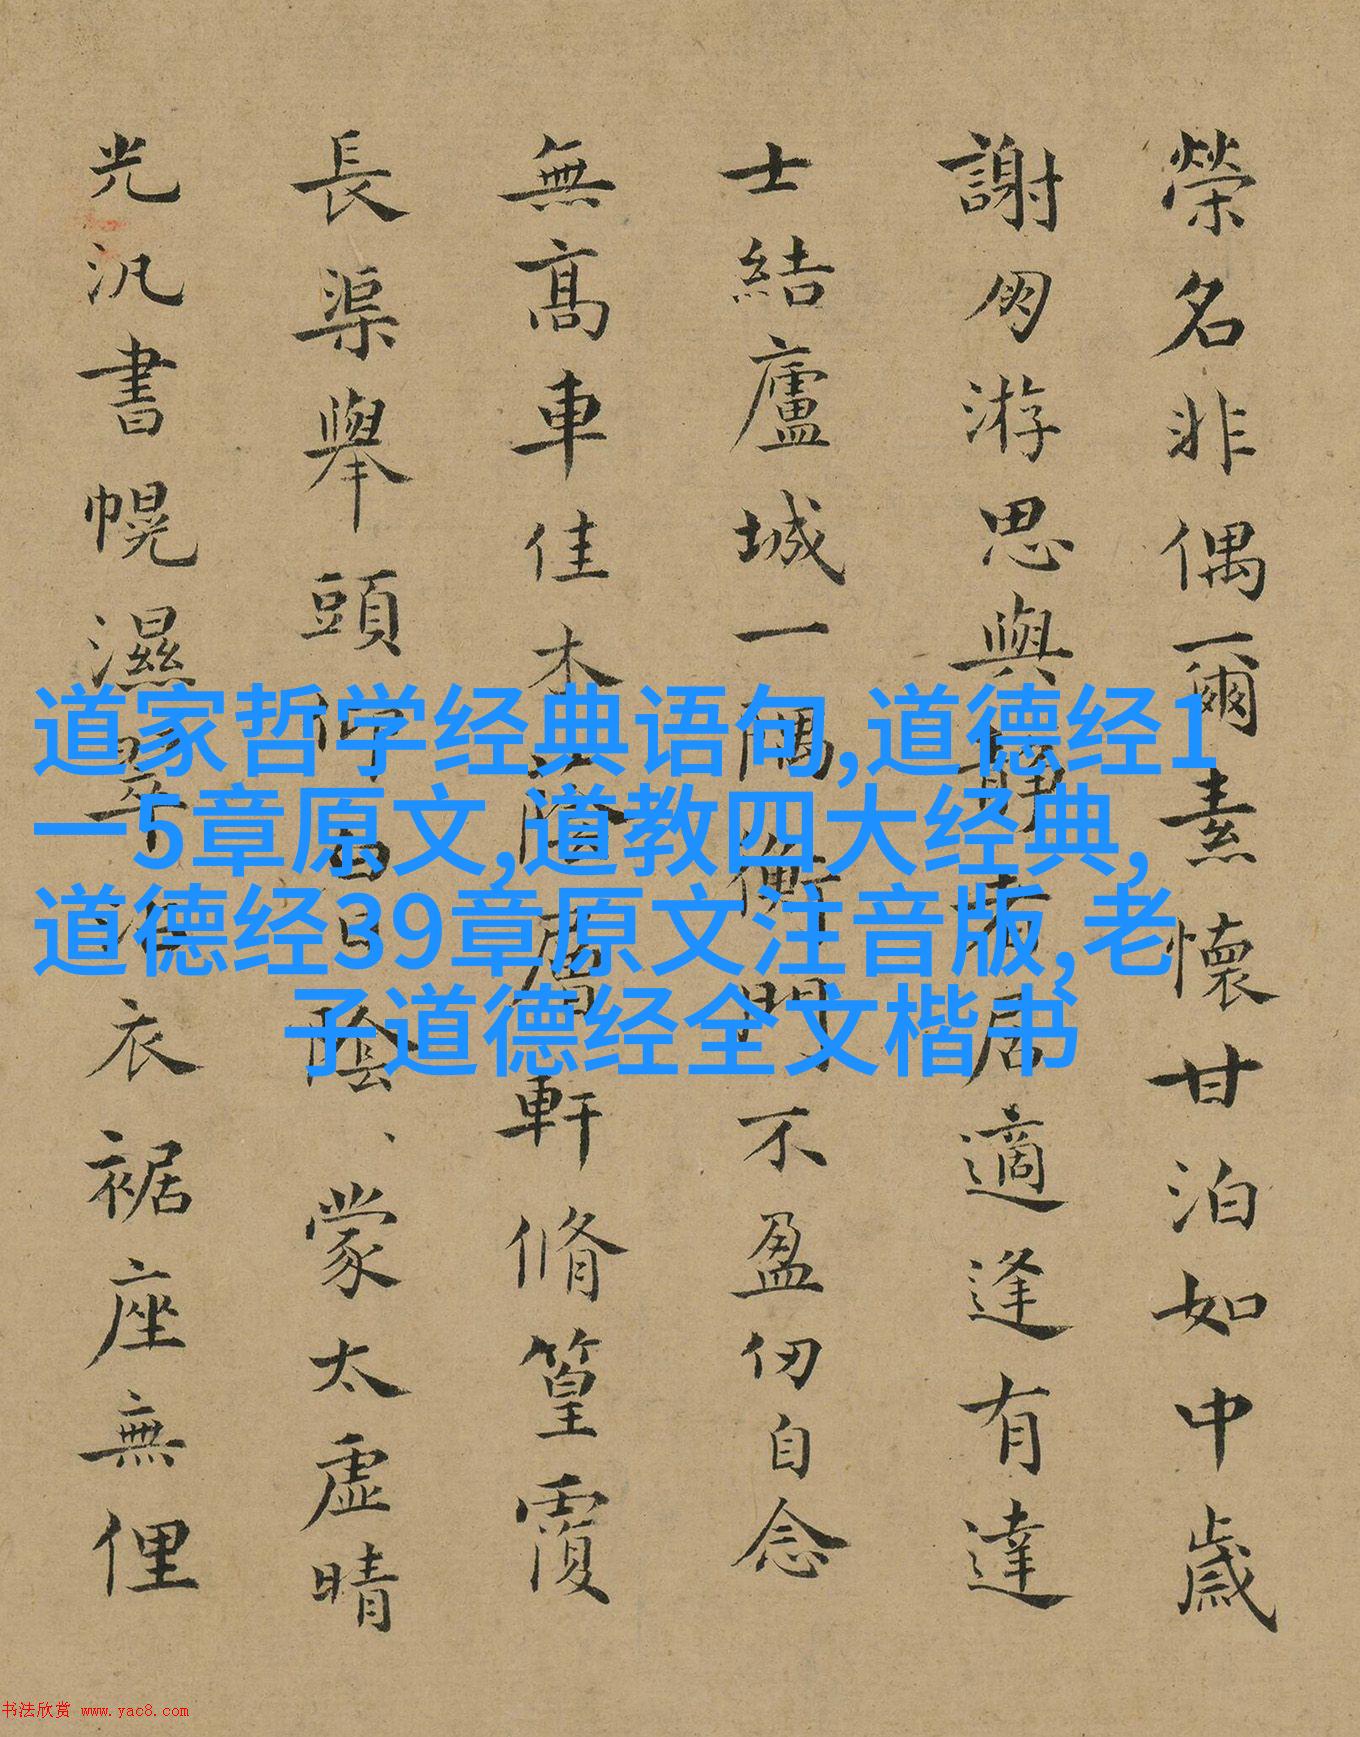 榮名非偶爾素懷甘泊如中歲
謝朋游思與靜者居適逢有達
士結廬城一隅衡門不盈仞自念
無高車佳木蔭層軒脩篁覆
長渠舉頭仰白日陰蒙太虛晴
光汎書幌濕翠沾衣裾座無俚
道家哲学经典语句,道德经1
一5章原文,道教四大经典,
道德经39章原文注音版,老
子道德经全文楷书
书法欣赏 www.yac8.com